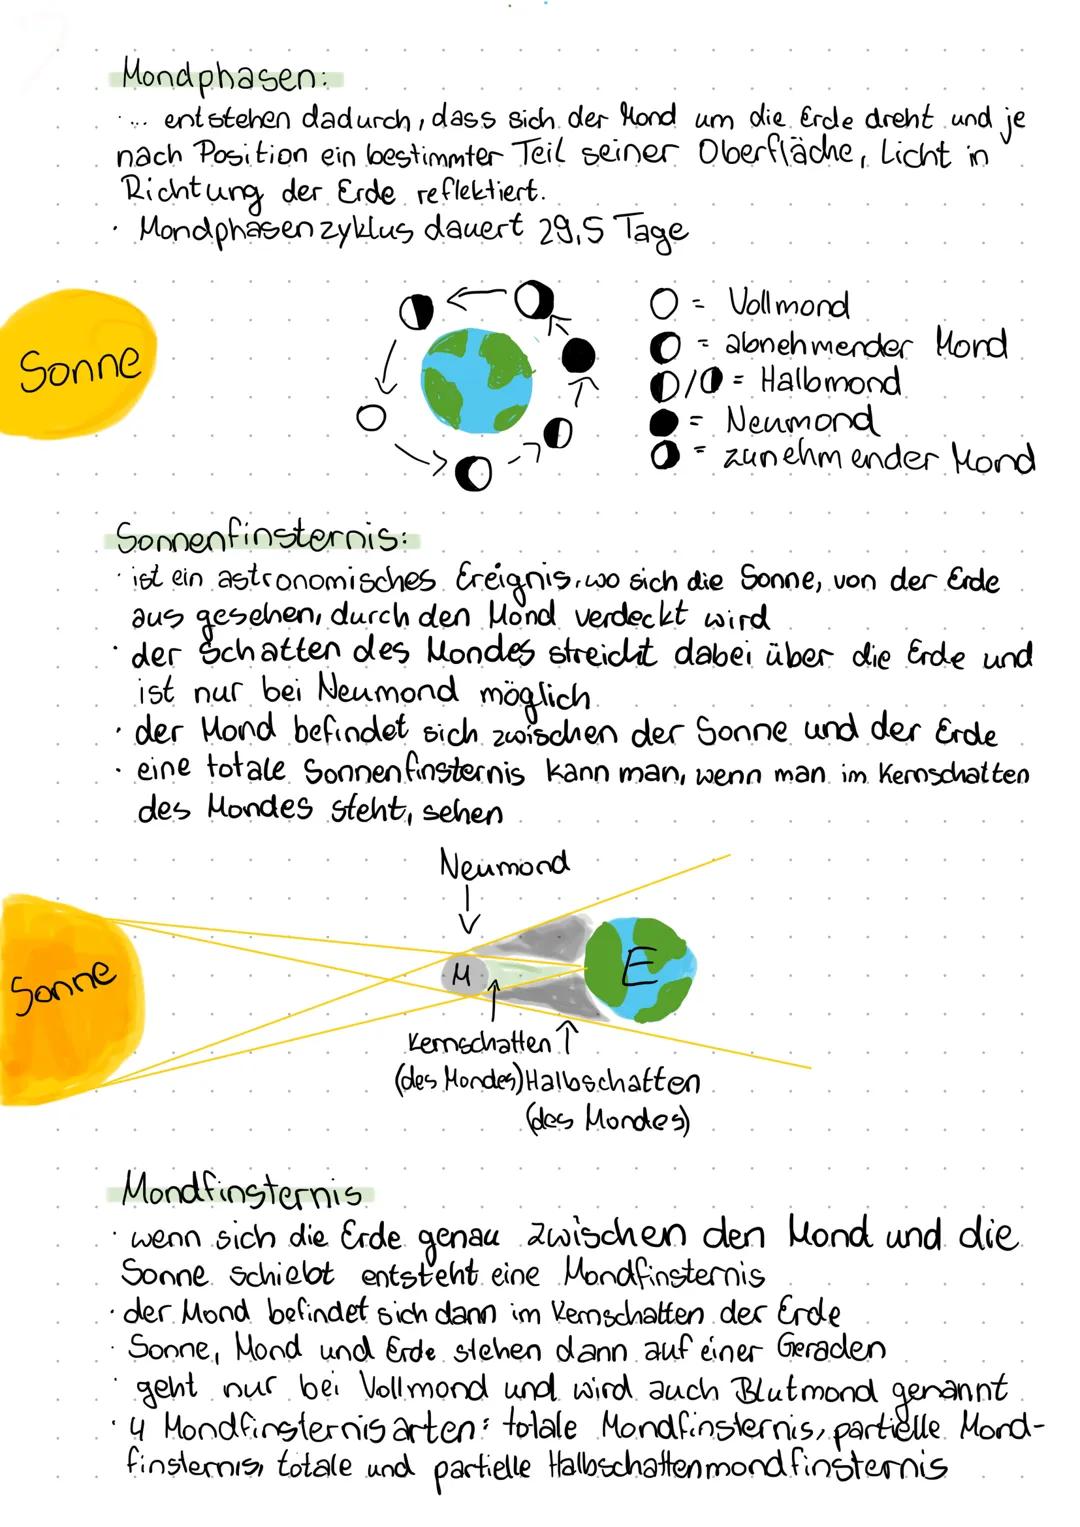 Mondphasen:
· ... entstehen dadurch, dass sich der Mond um die Erde dreht und je
nach Position ein bestimmter Teil seiner Oberfläche, Licht in
Richtung der Erde reflektiert.
· Mondphasenzyklus dauert 29,5 Tage
Sonne
= Vollmond
= abnehmender Mond
/ = Halbmond
= Neumond
= zunehmender Mond
Sonnenfinsternis:
· ist ein astronomisches Ereignis, wo sich die Sonne, von der Erde
aus gesehen, durch den Mond verdeckt wird
· der Schatten des Mondes streicht dabei über die Erde und
ist nur bei Neumond möglich
· der Mond befindet sich zwischen der Sonne und der Erde
· eine totale Sonnenfinsternis kann man, wenn man im Kernschatten
des Mondes steht, sehen
Neumond
Sonne
M
E
Kernschatten
(des Mondes) Halbschatten
(des Mondes)
Mondfinsternis
· wenn sich die Erde genau zwischen den Mond und die
Sonne schiebt entsteht eine Mondfinsternis
· der Mond befindet sich dann im Kernschatten der Erde
· Sonne, Mond und Erde stehen dann auf einer Geraden
· geht nur bei Vollmond und wird auch Blutmond genannt
· 4 Mondfinsternisarten: totale Mondfinsternis, partielle Mond-
finsternis, totale und partielle Halbschattenmondfinsternis